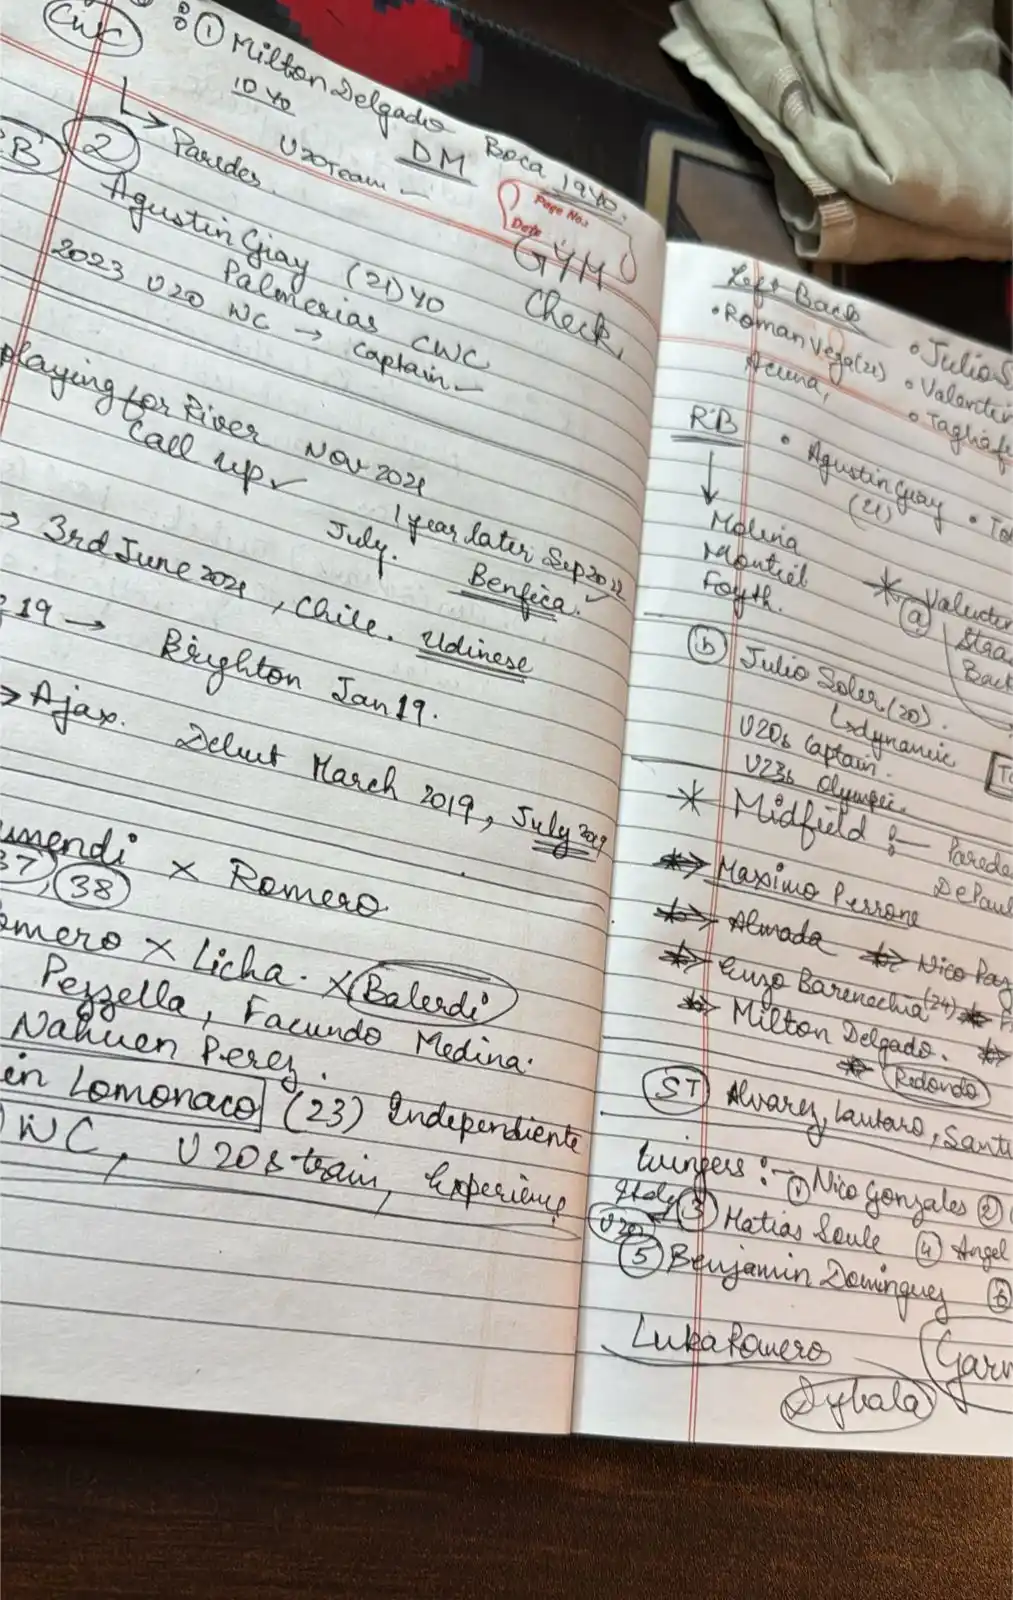 CWC
① Milton Delgado Boca 19 YO.
10 YO DM
↳ Paredes. U20 Team —
Page No.
Date
GYM
Check
② Agustin Giay (21) YO
Palmerias CWC
2023 U20 WC → Captain —
playing for River Nov 2021
Call up ✓ 1 year later Sep 2022
July. Benfica. ✓
→ 3rd June 2021, Chile. Udinese
19 → Brighton Jan 19.
→ Ajax. Debut March 2019, July 2019
x Romero
37, 38
x Licha. x Balerdi
Pezzella, Facundo Medina.
Nahuen Perez.
Lomonaco (23) Independiente
WC, U20s train, Experience
Left Back
• Roman Vega (21) • Julio S
Acuna, • Valentin
• Tagliafi
RB • Agustin Giay
↓ (21)
Molina
Montiel
Foyth.
* ⓐ
ⓑ Julio Soler (20).
↳ dynamic
U20s Captain.
U23s Olympic.
* Midfield :- Parede
DePaul
Maximo Perrone
Almada Nico Paz
Enzo Barenechia (24)
Milton Delgado.
Redondo
ST Alvarez, Lautaro, Santi
Wingers :- ① Nico Gonzales ②
Italy U20s ③ Matias Soule ④ Angel
⑤ Benjamin Dominguez ⑥
Luka Romero Garn
Dybala